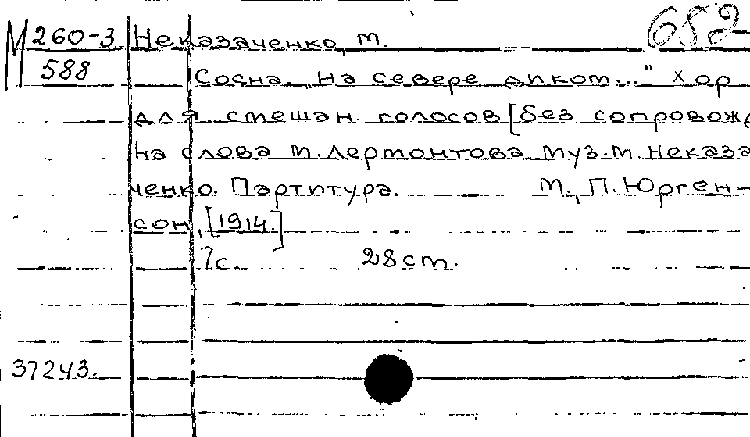 682
М 260-3 Неказаченко, М.
588 Сосна. „На севере диком..." Хор
для смешан голосов [без сопровож
на слова М.Лермонтова. Муз.М.Неказа
ченко. Партитура. М., П.Юрген-
сон, [1914]
7с. 28ст.
37243.